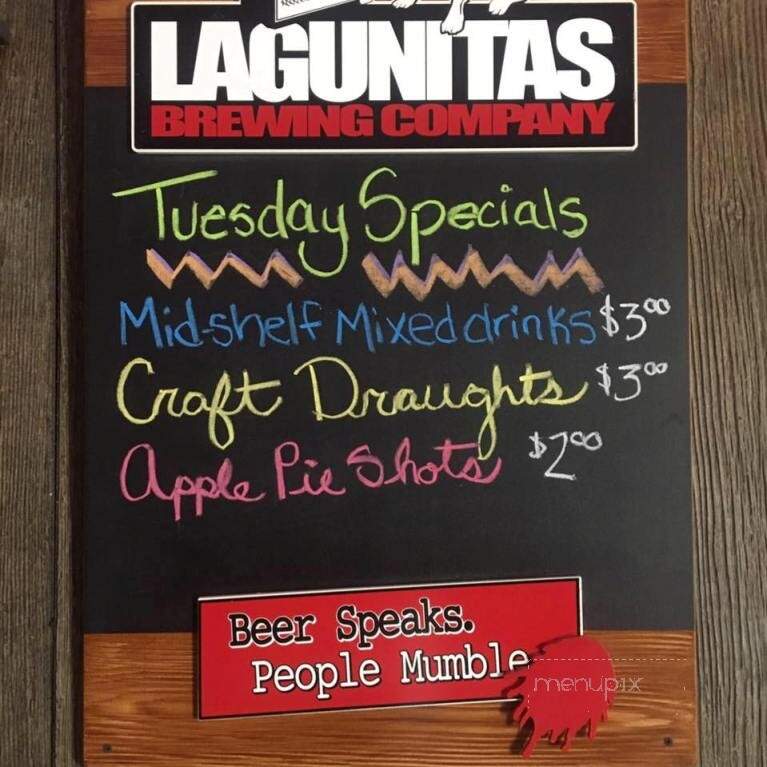 LAGUNITAS
BREWING COMPANY
Tuesday Specials
Mid-shelf Mixed drinks $3.00
Craft Draughts $3.00
Apple Pie Shots $2.00
Beer Speaks.
People Mumble
menupix